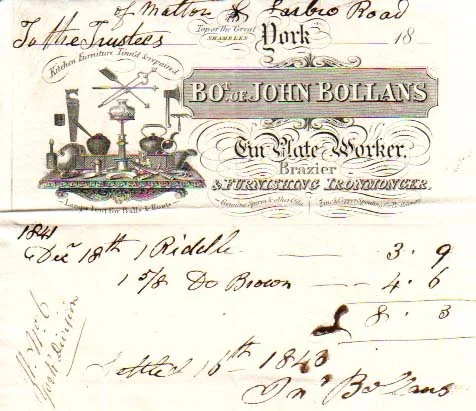 of Malton & Scarbro Road
To the Trustees
Top of the Great
SHAMBLES
York
18
Kitchen Furniture Tinn'd & repaired
BOT. OF JOHN BOLLANS
Tin Plate Worker,
Brazier
& FURNISHING IRONMONGER.
Lamps Lent for Balls & Routs
Genuine Sperm & other Oils
1841
Decr 18th 1 Riddle 3 . 9
1 5/8 Do Brown 4 . 6
£ 8 . 3
York Division
Settled 16th 1843
Jno Bollans